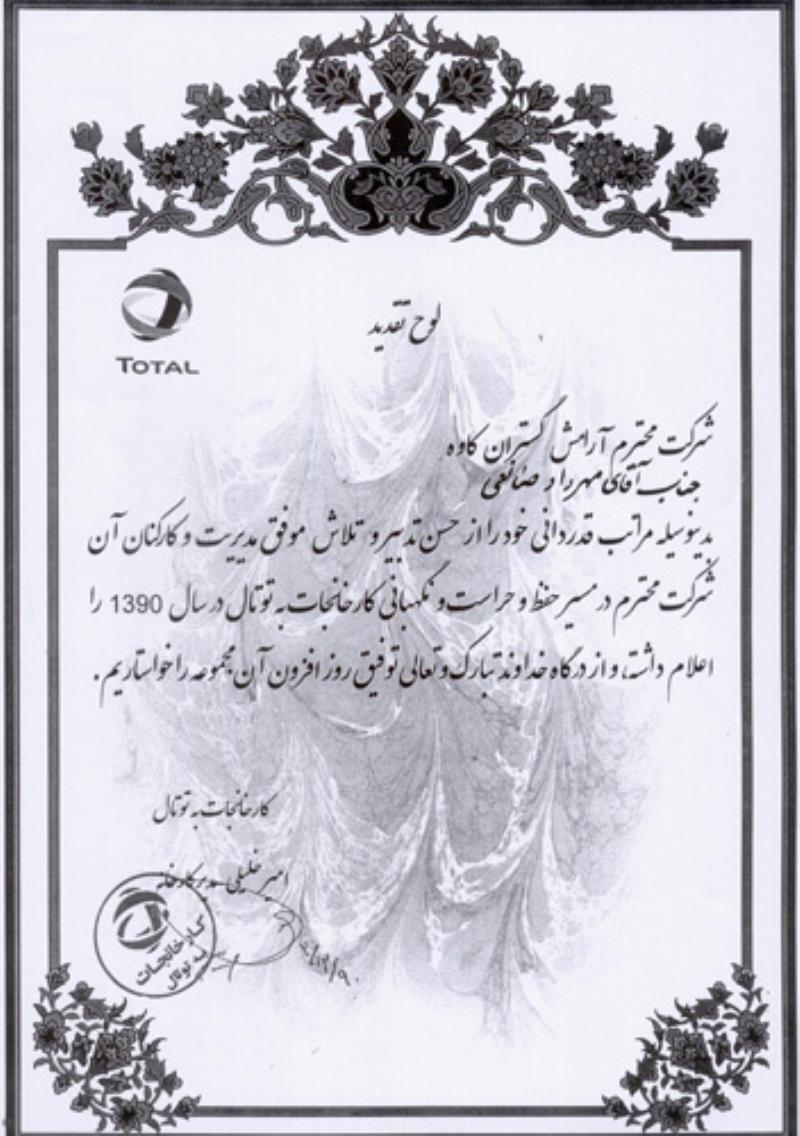 TOTAL
لوح تقدیر
شرکت محترم آرامش گستران کاوه
جناب آقای مهرداد صانعی
بدینوسیله مراتب قدردانی خود را از حسن تدبیر و تلاش موفق مدیریت و کارکنان آن
شرکت محترم در مسیر حفظ و حراست و نگهبانی کارخانجات به توتال در سال 1390 را
اعلام داشته، و از درگاه خداوند تبارک و تعالی توفیق روز افزون آن مجموعه را خواستاریم.
کارخانجات به توتال
امیر خلیلی مدیر کارخانه
کارخانجات
به توتال